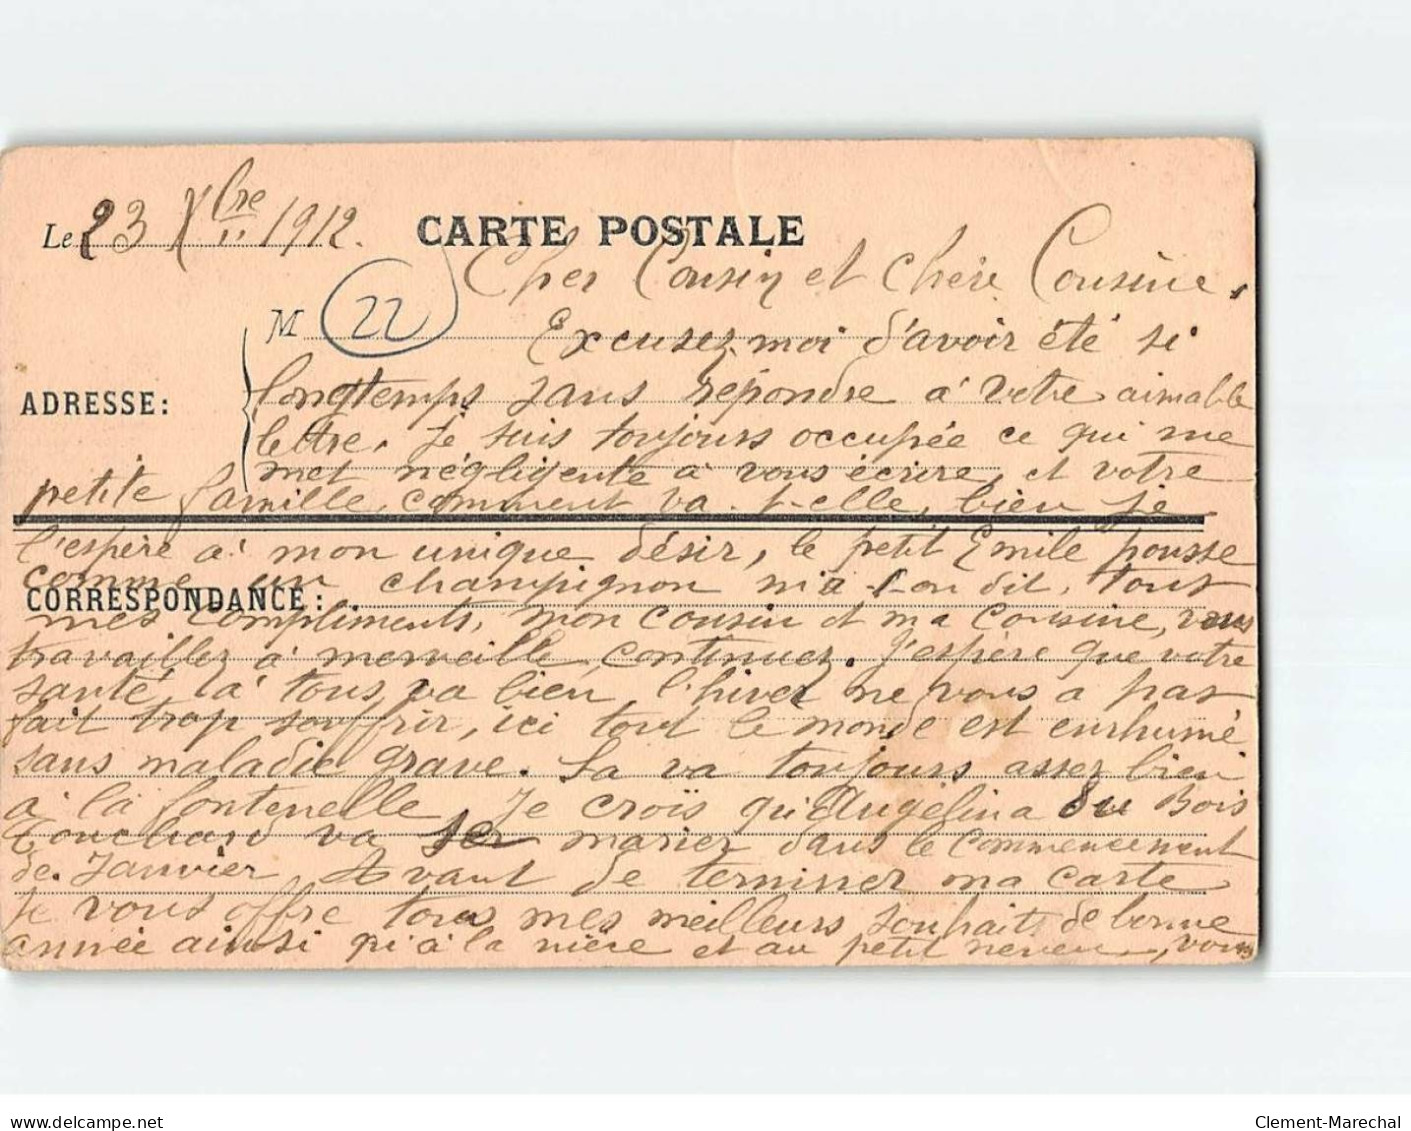 Le 23 Xbre 1912.
CARTE POSTALE
Cher Cousin et chère Cousine,
M 22
Excusez moi d'avoir été si
ADRESSE:
longtemps sans répondre à votre aimable
lettre, je suis toujours occupée ce qui me
met négligente à vous écrire, et votre
petite famille, comment va-t-elle, bien je
l'espère a mon unique désir, le petit Emile pousse
comme un champignon m'a t-on dit, tous
CORRESPONDANCE:
mes compliments, mon cousin et ma cousine, vous
travaillez à merveille, continuez. J'espère que votre
santé à tous va bien l'hiver ne vous a pas
fait trop souffrir, ici tout le monde est enrhumé
sans maladie grave. Sa va toujours assez bien
à la fontenelle, Je crois qu'Angélina du Bois
Touchard va se marier dans le commencement
de Janvier Avant de terminer ma carte
je vous offre tous mes meilleurs souhaits de bonne
année ainsi qu'à la nièce et au petit neveu, vous
Clement-Marechal
www.delcampe.net